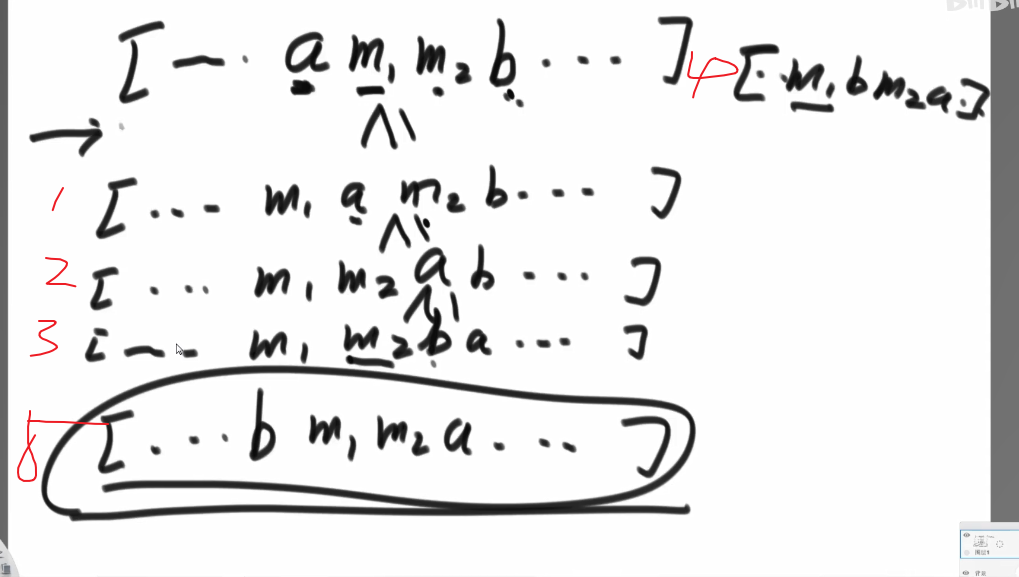 [ — · a m₁ m₂ b ··· ] 4 [·· m₁ b m₂ a ·]
→
1 [ ··· m₁ a m₂ b ··· ]
2 [ ··· m₁ m₂ a b ··· ]
3 [ — - m₁ m₂ b a ··· ]
5 [ ··· b m₁ m₂ a ··· ]